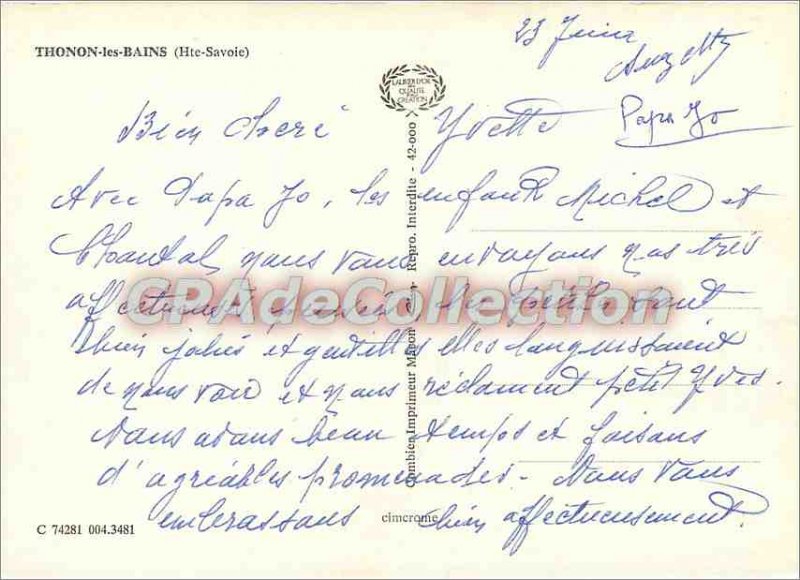 THONON-les-BAINS (Hte-Savoie)
23 Juin
Papa Jo
LAURIER D'OR
DE
QUALITÉ
CRÉATION
Bien cheré Yvette
Avec Papa Jo, les enfants Michel et
Chantal, nous vous envoyons nos très
affectueuses pensées. Les petites sont
bien jolies et gentilles elles languissaient
de nous voir et nous réclament petit Yves.
Nous avons beau temps et faisons
d'agréables promenades - Nous vous
embrassons bien affectueusement.
Combier Imprimeur Macon - Repro. Interdite - 42-000
CPAdeCollection
C 74281 004.3481
cimcrome